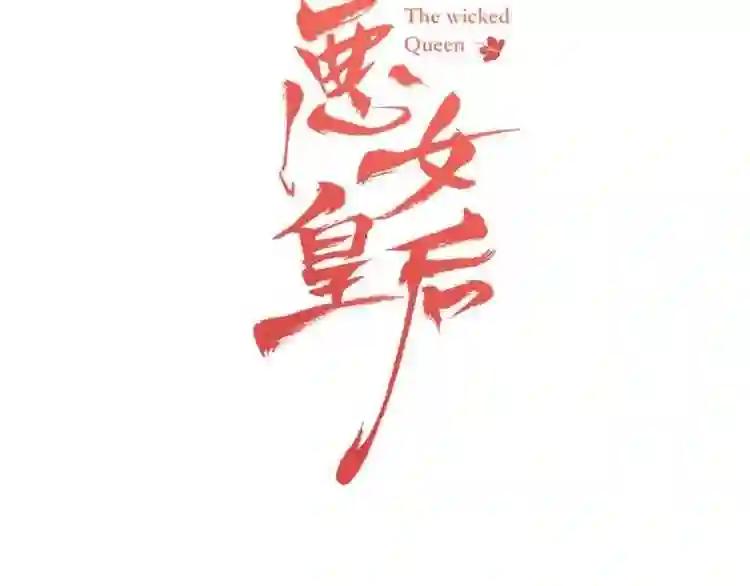 The wicked
Queen
惡女
皇后